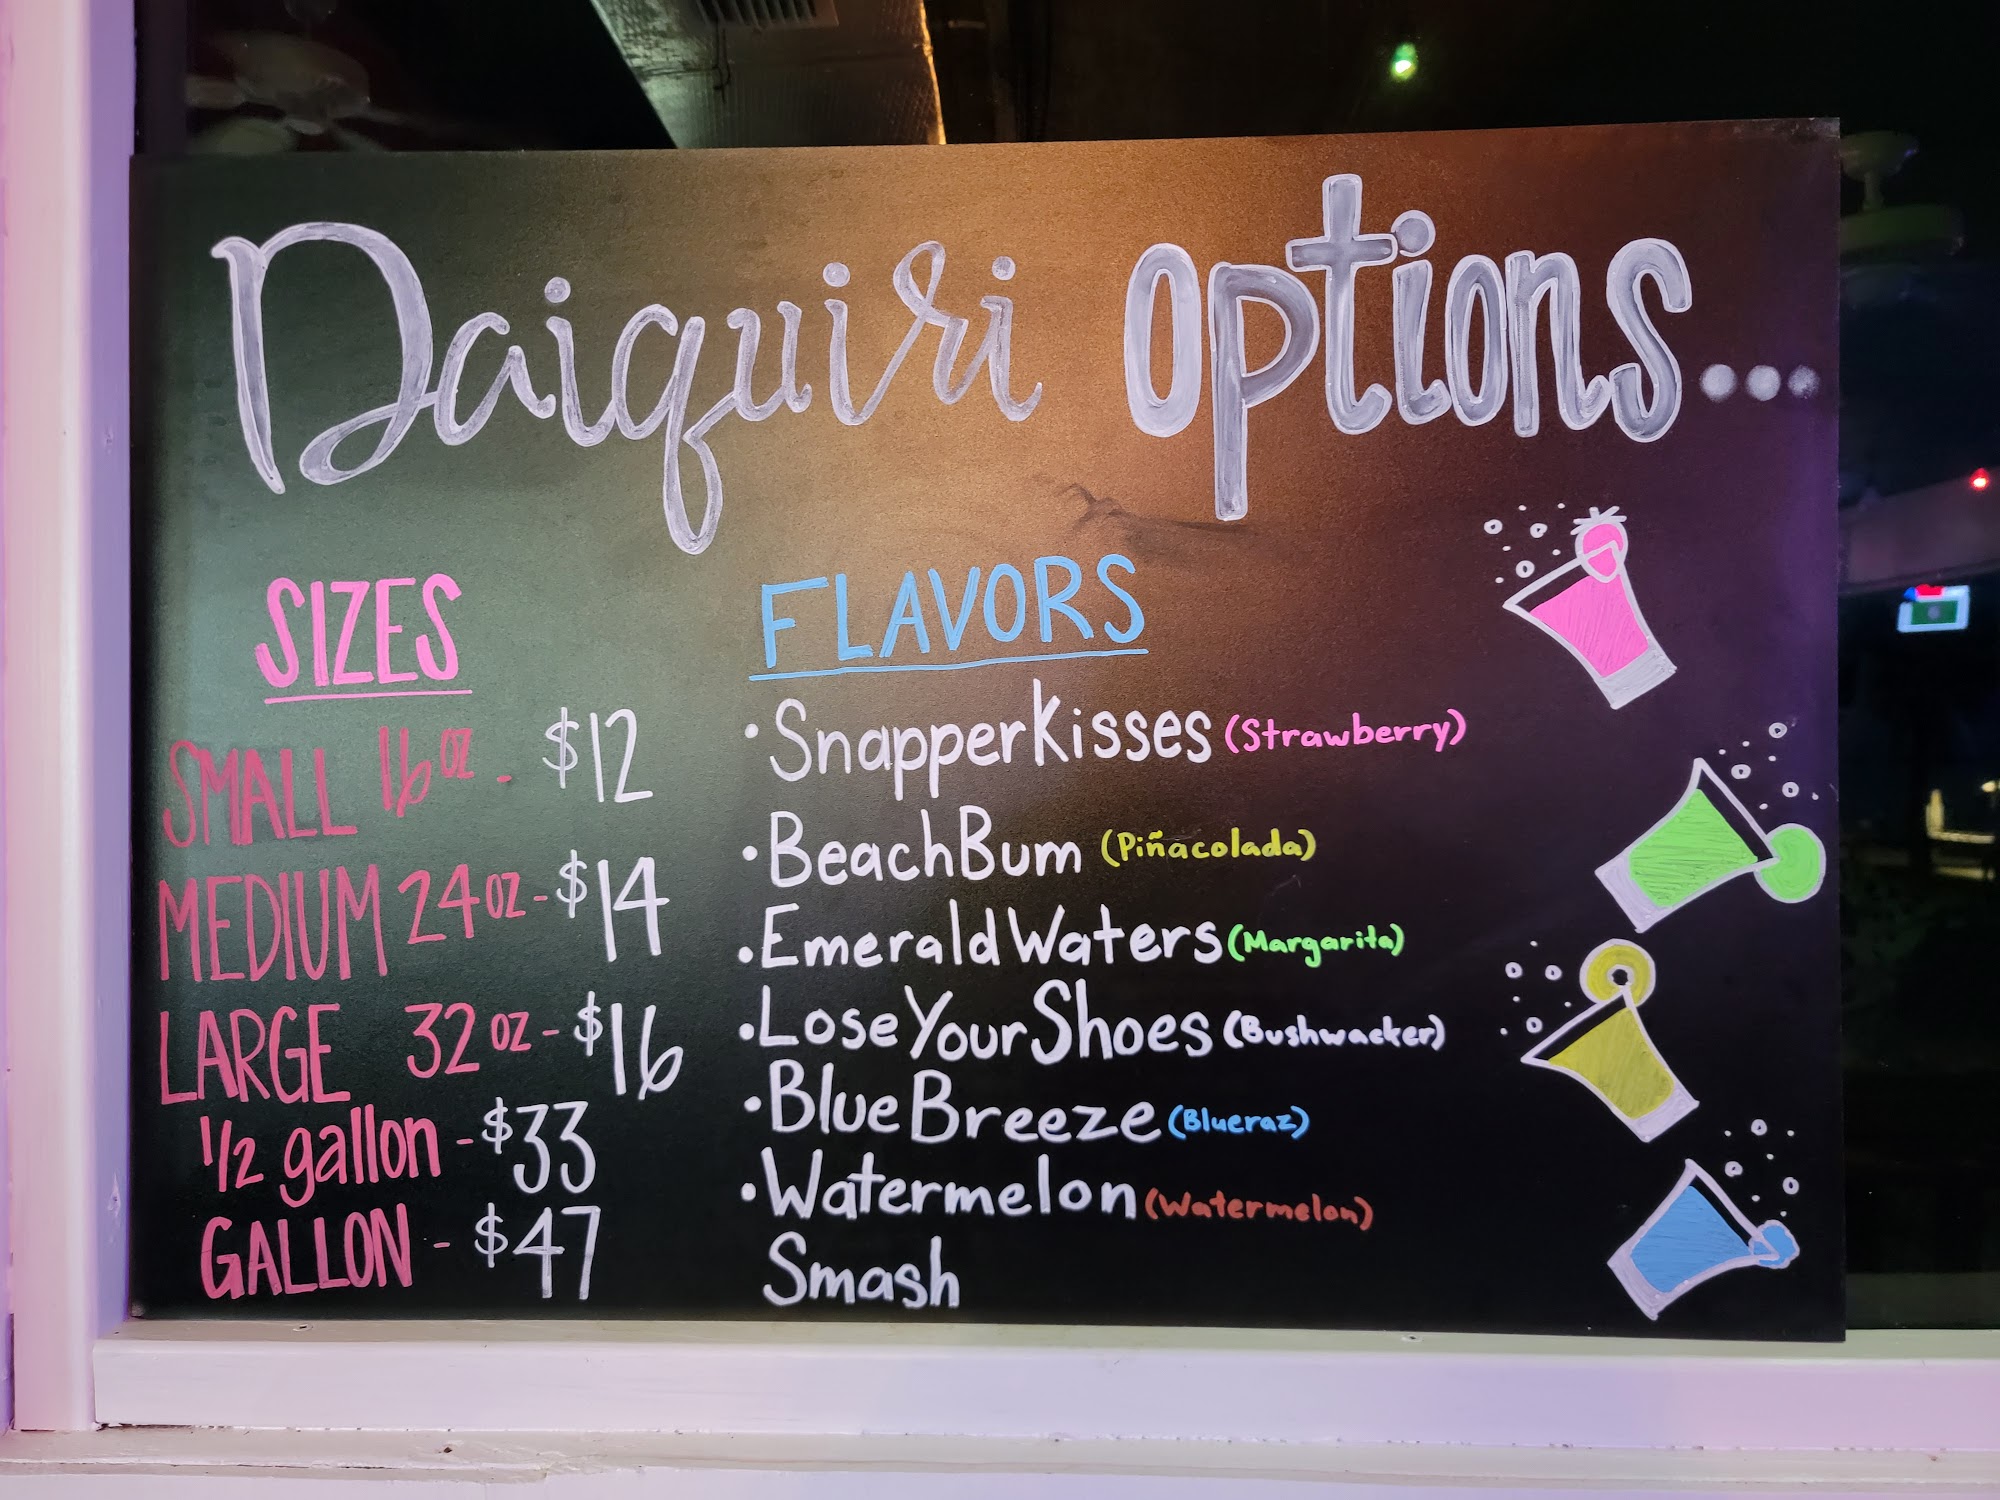 Daiquiri options...
SIZES
SMALL 16 oz - $12
MEDIUM 24 oz - $14
LARGE 32 oz - $16
1/2 gallon - $33
GALLON - $47
FLAVORS
• Snapper Kisses (Strawberry)
• Beach Bum (Piñacolada)
• Emerald Waters (Margarita)
• Lose Your Shoes (Bushwacker)
• Blue Breeze (Blueraz)
• Watermelon (Watermelon)
Smash